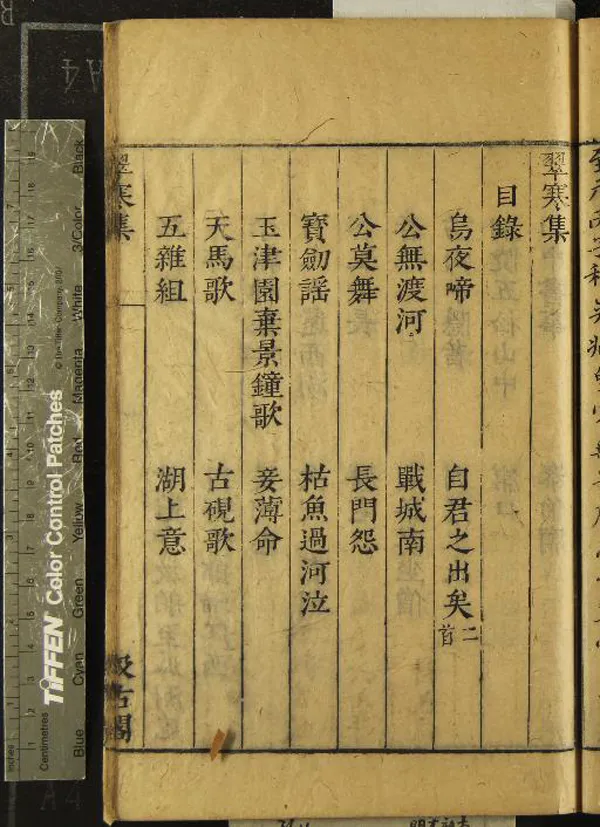 翠寒集
目錄
烏夜啼 自君之出矣二首
公無渡河 戰城南
公莫舞 長門怨
寶劒謡 枯魚過河泣
玉津園棄景鐘歌 妾薄命
天馬歌 古硯歌
五雜組 湖上意
翠寒集 汲古閣
TIFFEN Color Control Patches
© The Tiffen Company, 2007
Centimetres
Inches
Blue Cyan Green Yellow Red Magenta White 3/Color Black
A4